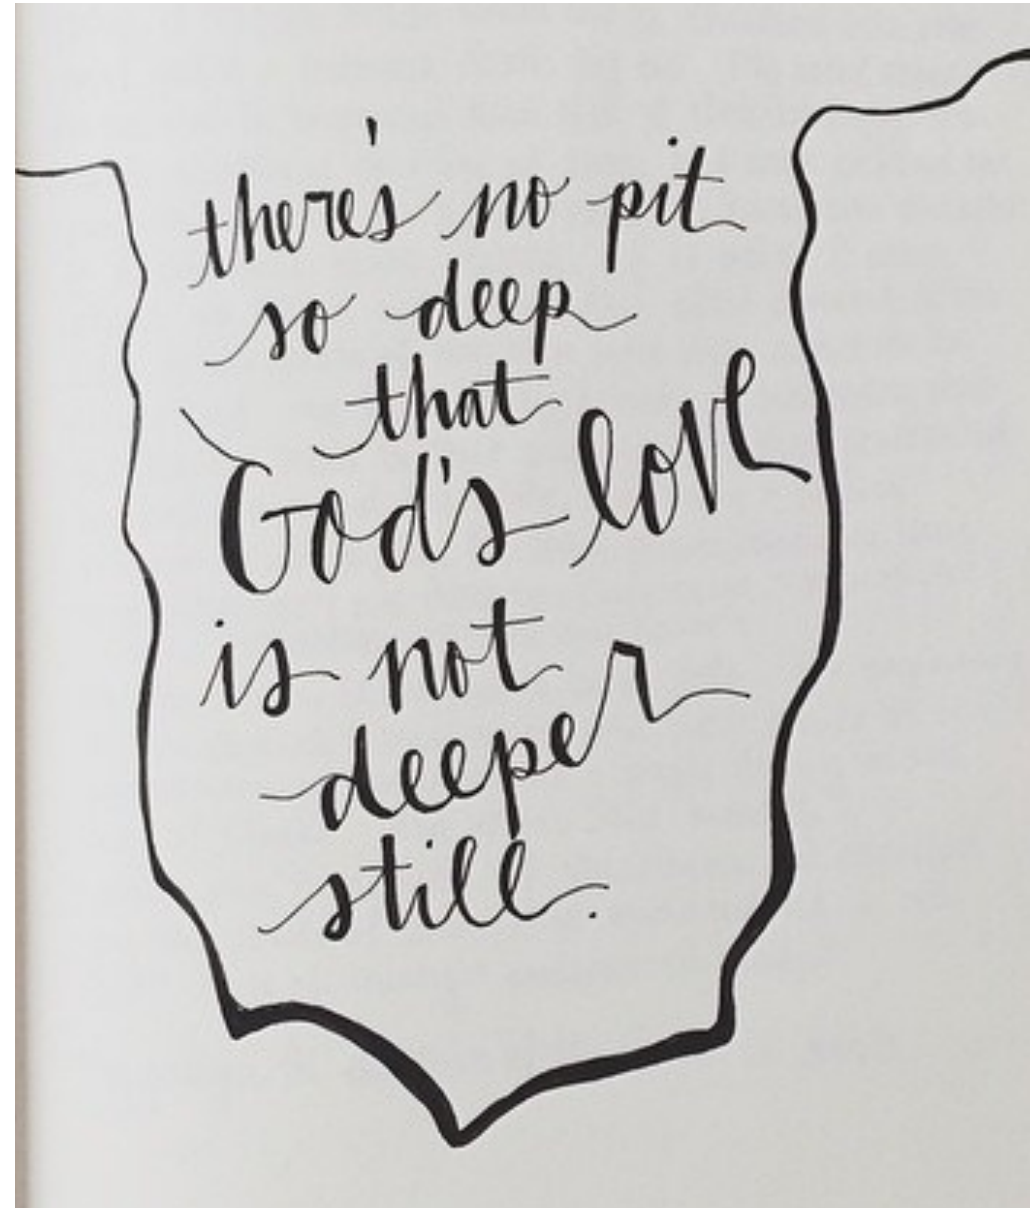 there's no pit
so deep
that
God's love
is not
deeper
still.